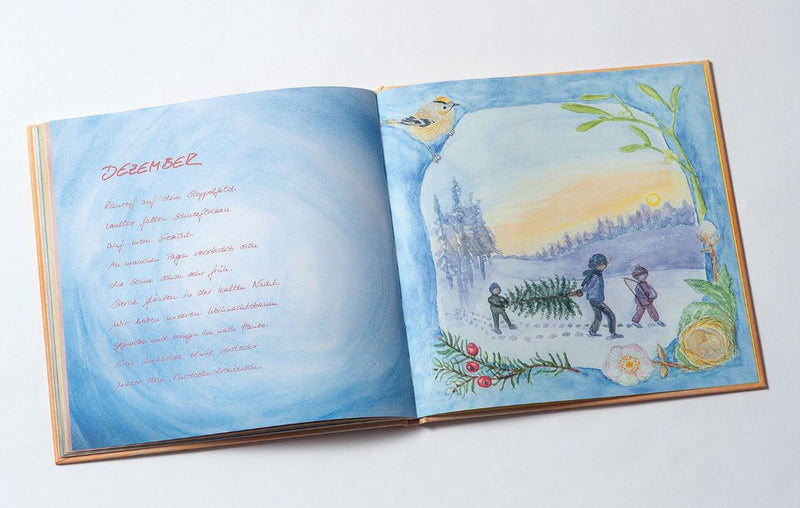 DEZEMBER
Raureif auf dem Stoppelfeld.
Lautlos fallen Schneeflocken
auf mein Gesicht.
An manchen Tagen versteckt sich
die Sonne schon sehr früh.
Sterne glänzen in der kalten Nacht.
Wir haben unseren Weihnachtsbaum
gefunden und bringen ihn nach Hause.
Eine versteckt
unter dem